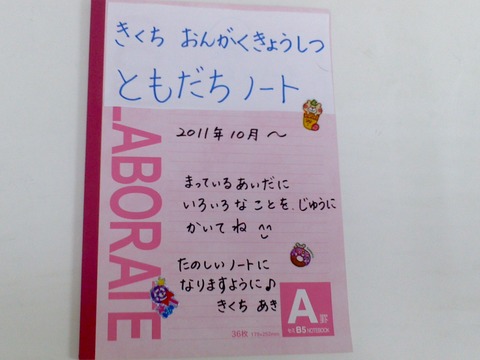 きくち おんがくきょうしつ
ともだちノート
2011年10月〜
まっているあいだに
いろいろなことを、じゆうに
かいてね ^^
たのしいノートに
なりますように♪
きくち あき
LABORATE
A罫
B5 NOTEBOOK
36枚